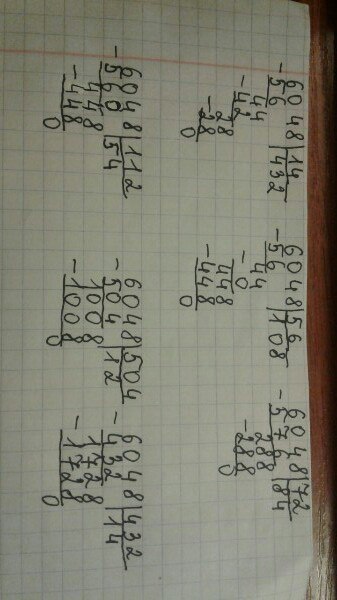 -6048|14
56 |432
-44
42
-28
28
0
-6048|56
56 |108
-44
0
-448
448
0
-6048|72
576 |84
-288
288
0
-6048|112
560 |54
-448
448
0
-6048|504
504 |12
-1008
1008
0
-6048|432
432 |14
-1728
1728
0